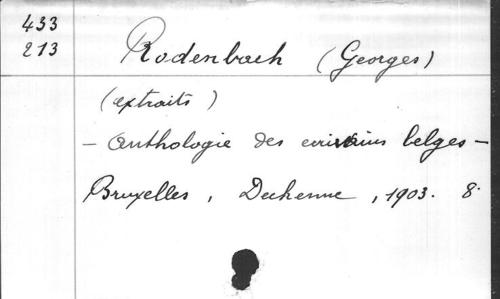 433
213
Rodenbach (Georges)
(extraits)
- Anthologie des écrivains belges -
Bruxelles, Dechenne, 1903. 8°